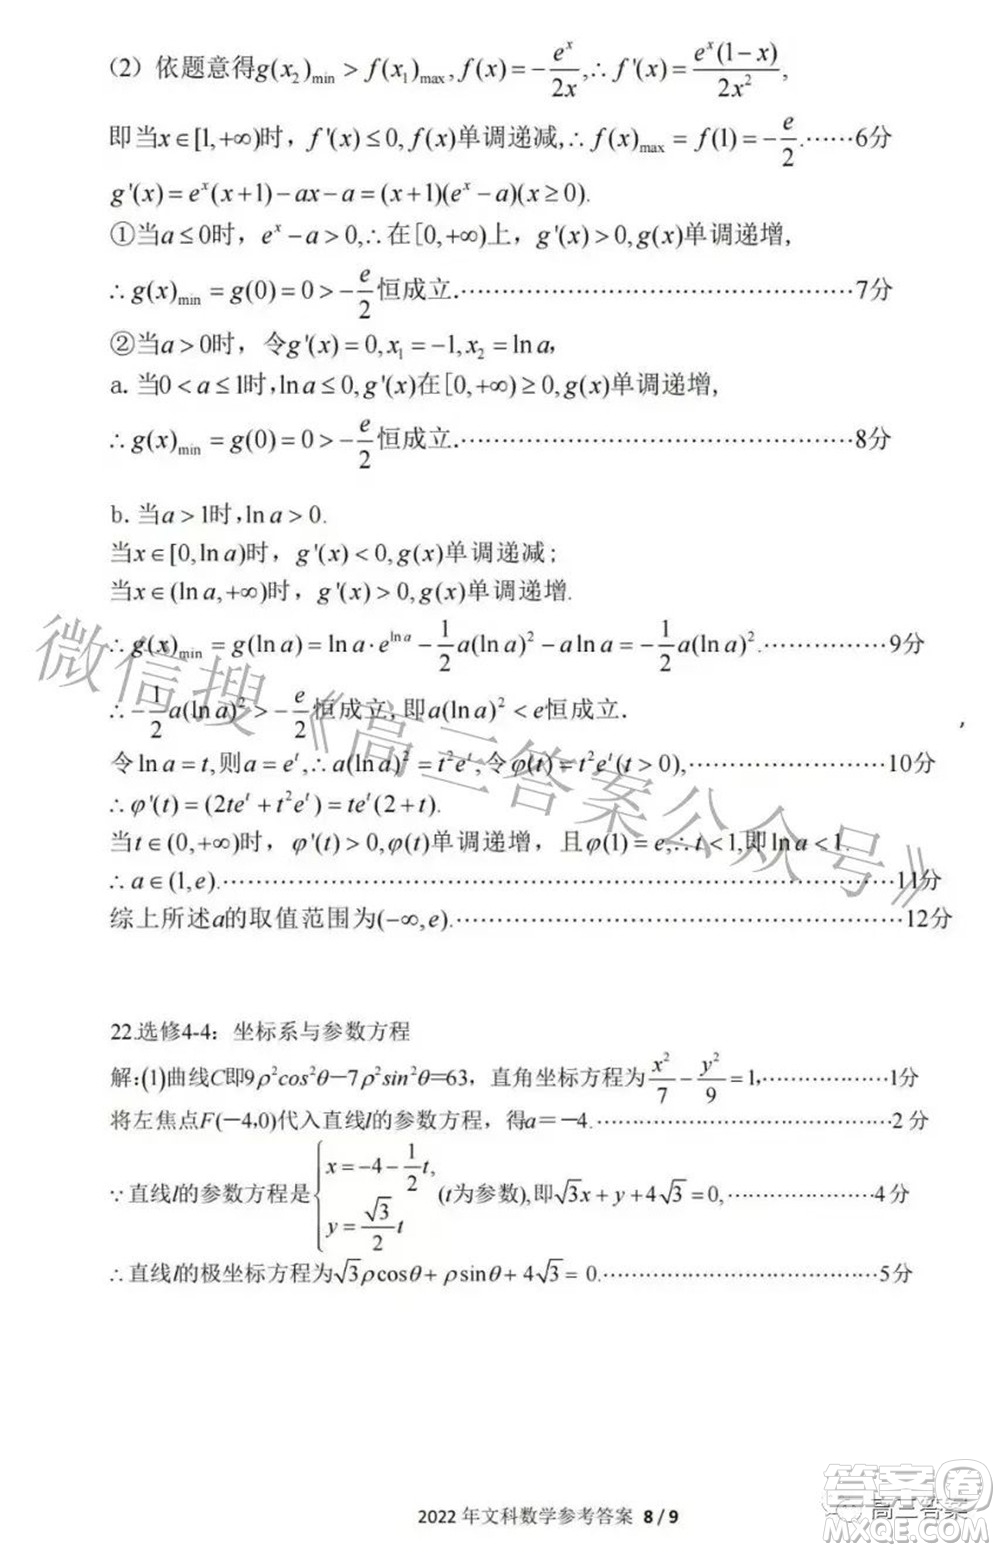 （2）依题意得g(x₂)min > f(x₁)max, f(x) = -e^x/2x, ∴ f'(x) = e^x(1-x)/2x²,
即当x∈[1,+∞)时，f'(x)≤0, f(x)单调递减, ∴ f(x)max = f(1) = -e/2.……6分
g'(x) = e^x(x+1) - ax - a = (x+1)(e^x - a)(x≥0).
①当a≤0时，e^x - a > 0, ∴在[0,+∞)上，g'(x)>0, g(x)单调递增,
∴ g(x)min = g(0) = 0 > -e/2恒成立.………………7分
②当a>0时，令g'(x) = 0, x₁ = -1, x₂ = ln a,
a. 当0<a≤1时, ln a≤0, g'(x)在[0,+∞)≥0, g(x)单调递增,
∴ g(x)min = g(0) = 0 > -e/2恒成立.………………8分
b. 当a>1时, ln a>0.
当x∈[0,ln a)时，g'(x)<0, g(x)单调递减;
当x∈(ln a,+∞)时，g'(x)>0, g(x)单调递增.
∴ g(x)min = g(ln a) = ln a·e^{ln a} - 1/2 a(ln a)² - a ln a = -1/2 a(ln a)².……………9分
∴ -1/2 a(ln a)² > -e/2恒成立, 即a(ln a)² < e恒成立.
令ln a = t, 则a = e^t, ∴ a(ln a)² = t²e^t, 令φ(t) = t²e^t(t>0),………………10分
∴ φ'(t) = (2te^t + t²e^t) = te^t(2+t).
当t∈(0,+∞)时，φ'(t)>0, φ(t)单调递增，且φ(1) = e, ∴ t<1, 即ln a<1.
∴ a∈(1,e).………………11分
综上所述a的取值范围为(-∞,e).………………12分
22.选修4-4：坐标系与参数方程
解:(1)曲线C即9ρ²cos²θ－7ρ²sin²θ=63，直角坐标方程为x²/7 - y²/9 = 1,……………1分
将左焦点F(－4,0)代入直线l的参数方程，得a＝－4.………………2 分
∵直线l的参数方程是{x = -4 - 1/2 t, y = √3/2 t (t为参数), 即√3x + y + 4√3 = 0,………………4 分
∴直线l的极坐标方程为√3ρcosθ + ρsinθ + 4√3 = 0.………………5分
2022 年文科数学参考答案 8 / 9
微信搜《高三答案公众号》
高三答案
答案圈
MXQE.COM